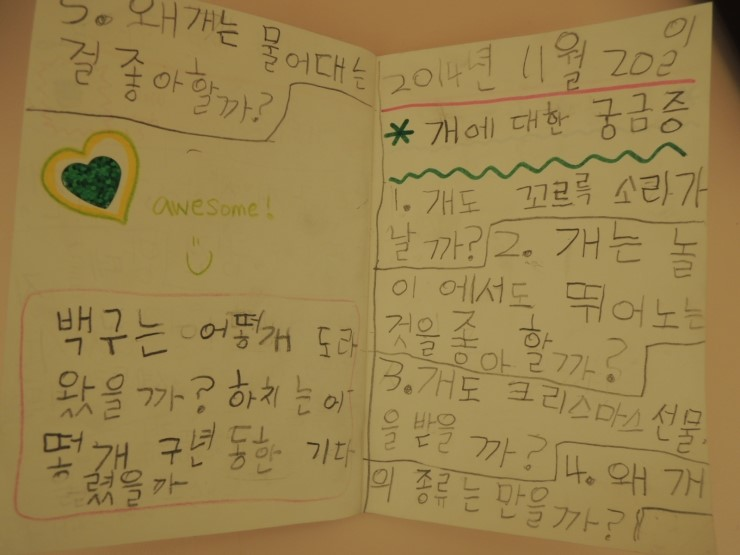 5. 왜개는 물어대는
걸 좋아할까?
awesome!
백구는 어떻개 도라
왔을까? 하치는 어
떻개 9년동한 기다
렸을까
2014년 11월 20일
* 개에 대한 궁금증
1. 개도 꼬르륵 소라가
날까? 2. 개는 놀
이에서도 뛰어노는
것을 좋아할까?
3. 개도 크리스마스 선물
을 받을까? 4. 왜 개
의 종류는 만을까?